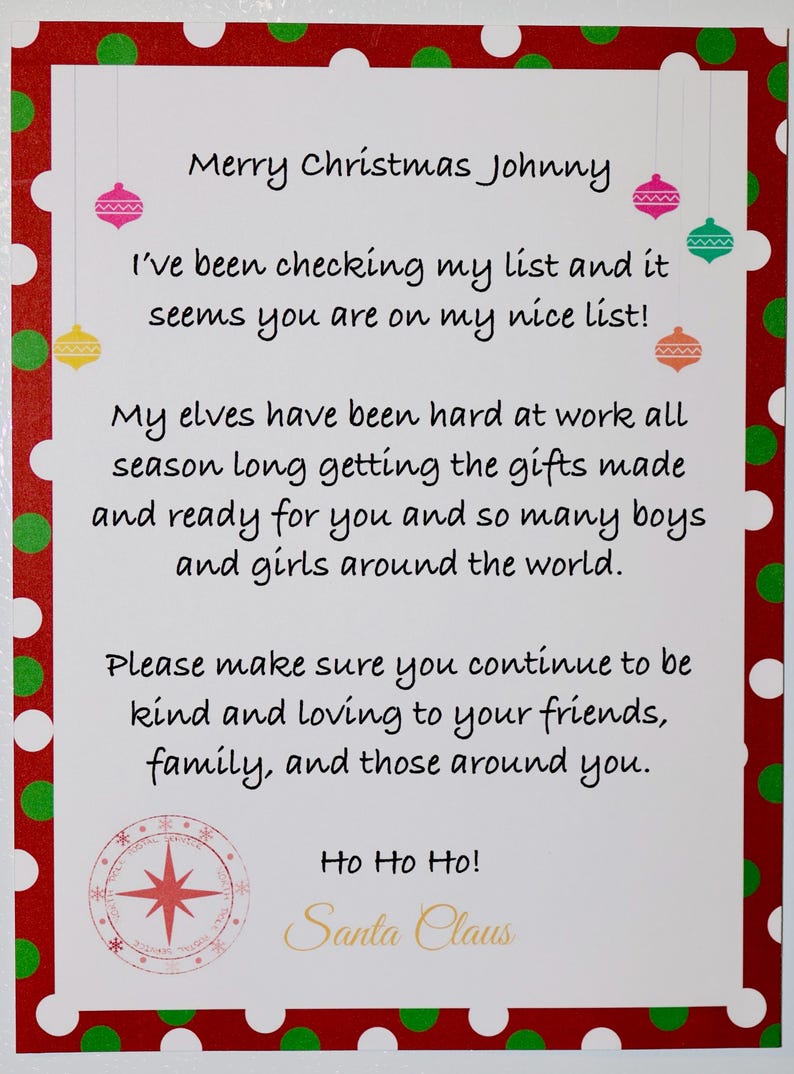 Merry Christmas Johnny
I've been checking my list and it
seems you are on my nice list!
My elves have been hard at work all
season long getting the gifts made
and ready for you and so many boys
and girls around the world.
Please make sure you continue to be
kind and loving to your friends,
family, and those around you.
Ho Ho Ho!
Santa Claus
NORTH POLE POSTAL SERVICE
NORTH POLE POSTAL SERVICE